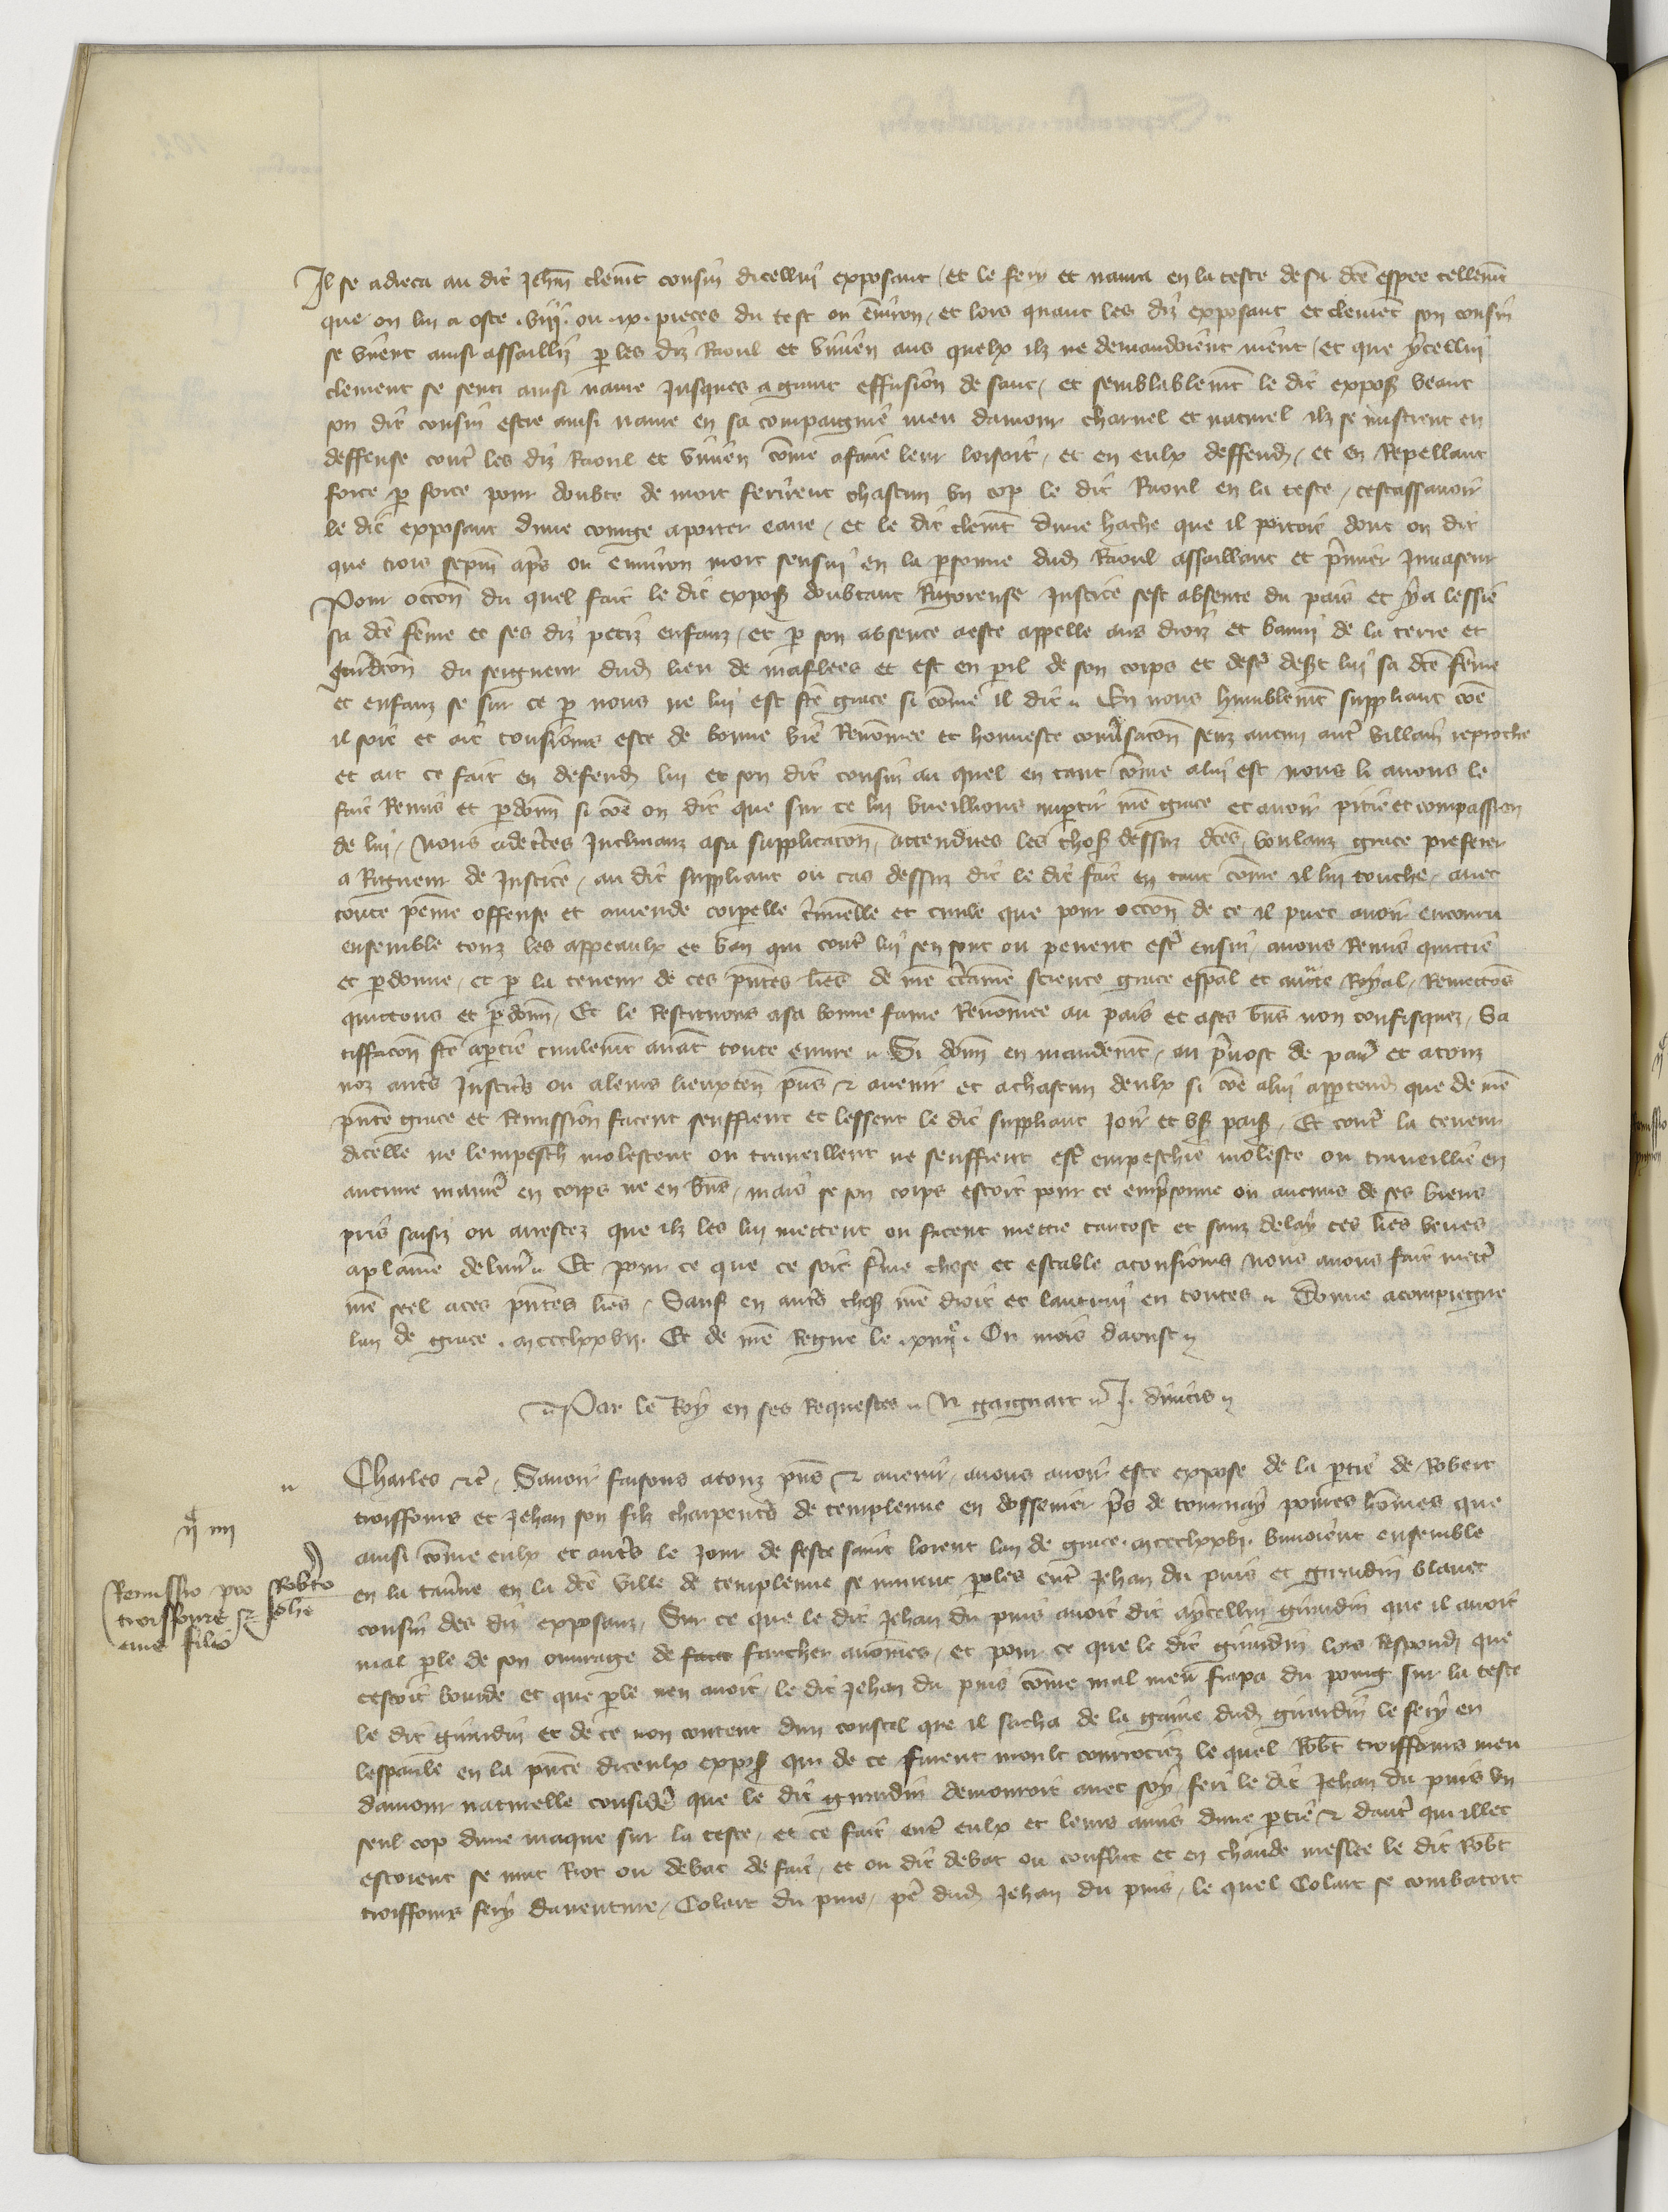 Il se adreca au dit Jehan clemt cousin dicellui exposant / et le fery et navra en la teste de sa dce espee tellemt
que on lui a oste .viii. ou .ix. pieces du test ou environ, et lors quant les diz exposant et clemet son cousin
se virent ainsi assailliz p les diz Raoul et Vivien aus quelx ilz ne demandoient nient / et que ycellui
clement se senti ainsi navre jusques a grant effusion de sanc, et semblablemt le dit expos veant
son dit cousin estre ainsi navre en sa compaignie meu damour charnel et naturel ilz se mistrent en
deffense contre les diz Raoul et Vivien come a faire leur loisoit, et en eulx deffend, et en Repellant
force p force pour doubte de mort ferirent chascun un cop le dit Raoul en la teste, cestassavoir
le dit exposant dune courge a porter eaue, et le dit clemt dune hache que il portoit dont on dit
que trois sepm apres ou environ mort sensui en la psonne dud Raoul assaillant et pmier Invaseur
Pour occon du quel fait le dit expos doubtant Rigoreuse justice sest absente du pais et y a lessie
sa dce feme et ses diz petiz enfanz, et p son absence a este appelle aus droiz et banni de la terre et
juridcon du seigneur dud lieu de maflees et est en pil de son corps et destre desert lui sa dce feme
et enfanz se sur ce p nous ne lui est fte grace si come il dit. En nous humblemt suppliant coe
il soit et ait tousiours este de bonne vie Renomee et honneste conversacon senz aucun autre villain reproche
et ait ce fait en defend lui et son dit cousin au quel en tant come a lui est nous li avons le
fait Remis et pdonn si coe on dit que sur ce lui vueillions impartir nre grace et avoir pitie et compassion
de lui, Nous adecertes Inclinanz a sa supplicacon, attendues les chos dessuz dces, voulanz grace preferer
a Rigueur de Justice, au dit suppliant ou cas dessuz dit le dit fait en tant come il lui touche, avec
toute peine offense et amende corpelle criminelle et civile que pour occon de ce il puet avoir encouru
ensemble touz les appeaulx et ban qui contre lui sen sont ou pevent estre ensuis, avons Remis quittie
et pdonne, et p la teneur de ces pntes lres de nre ctaine science grace espal et aucte Royal, Remettons
quittons et pdonn, Et le Restituons a sa bonne fame Renomee au pais et a ses bns non confisquez, Sa
tiffacon fte a ptie civilemt avat toute euvre. Si donn en mandemt, au pvost de paris et a touz
noz autres Justiciers ou a leurs lieuxten pns et avenir et a chascun deulx si coe a lui appartend que de nre
pnte grace et Remission facent seuffrent et lessent le dit suppliant joir et user pais, Et contre la teneur
dicelle ne lempesch molestent ou traveillent ne seuffrent estre empeschie moleste ou traveillie en
aucune maniere en corps ne en bns, mais se son corps estoit pour ce emprisonne ou aucuns de ses biens
pris saisiz ou arrestez que ilz les lui mettent ou facent mettre tantost et sanz delay ces lres veues
a plaine delivr. Et pour ce que ce soit ferme chose et estable a tousiours nous avons fait mettre
nre seel a ces pntes lres, Sauf en autres choses nre droit et lautrui en toutes. Donne a compiegne
lan de grace .m ccclxxvii. Et de nre Regne le .xiiiie. Ou mois daoust.
Par le Roy en ses Requestes. N gaignart. J. divitis.
Charles etc, Savoir faisons a touz pns et avenir, a nous avoir este expose de la ptie de Robert
troiffons et Jehan son filz charpentiers de templeuve en dossemer pres de tournay povres homes que
ainsi come eulx et autres le jour de feste saint lorent lan de grace .m ccclxxvi. buvoient ensemble
en la taverne en la dce ville de templeuve se murent poles entre Jehan du puis et girardin blauet
cousin des diz exposanz, Sur ce que le dit Jehan du puis avoit dit a ycellui girardin que il avoit
mal ple de son ouvrage de faucher avoines, et pour ce que le dit girardin lors Respond que
cestoit bourde et que ple nen avoit, le dit Jehan du puis come mal meu frapa du poing sur la teste
le dit girardin et de ce non content dun coustel que il sacha de la gaine dud girardin le fery en
lespaule en la pnce diceulx expos qui de ce furent moult courrociez le quel Robt troiffons meu
damour naturelle considere que le dit girardin demouroit avec soy feri le dit Jehan du puis un
seul cop dune maque sur la teste, et ce fait entre eulx et leurs amis dune ptie et dautre qui illec
estoient se mut Riot ou debat de fait, et ou dit debat ou conflict et en chaude meslee le dit Robt
troiffons fery daventure, Colart du puis, pere dud Jehan du puis, le quel Colart se combatoit
iiii
Remissio pro Robto
troissons et Johe
eius filio